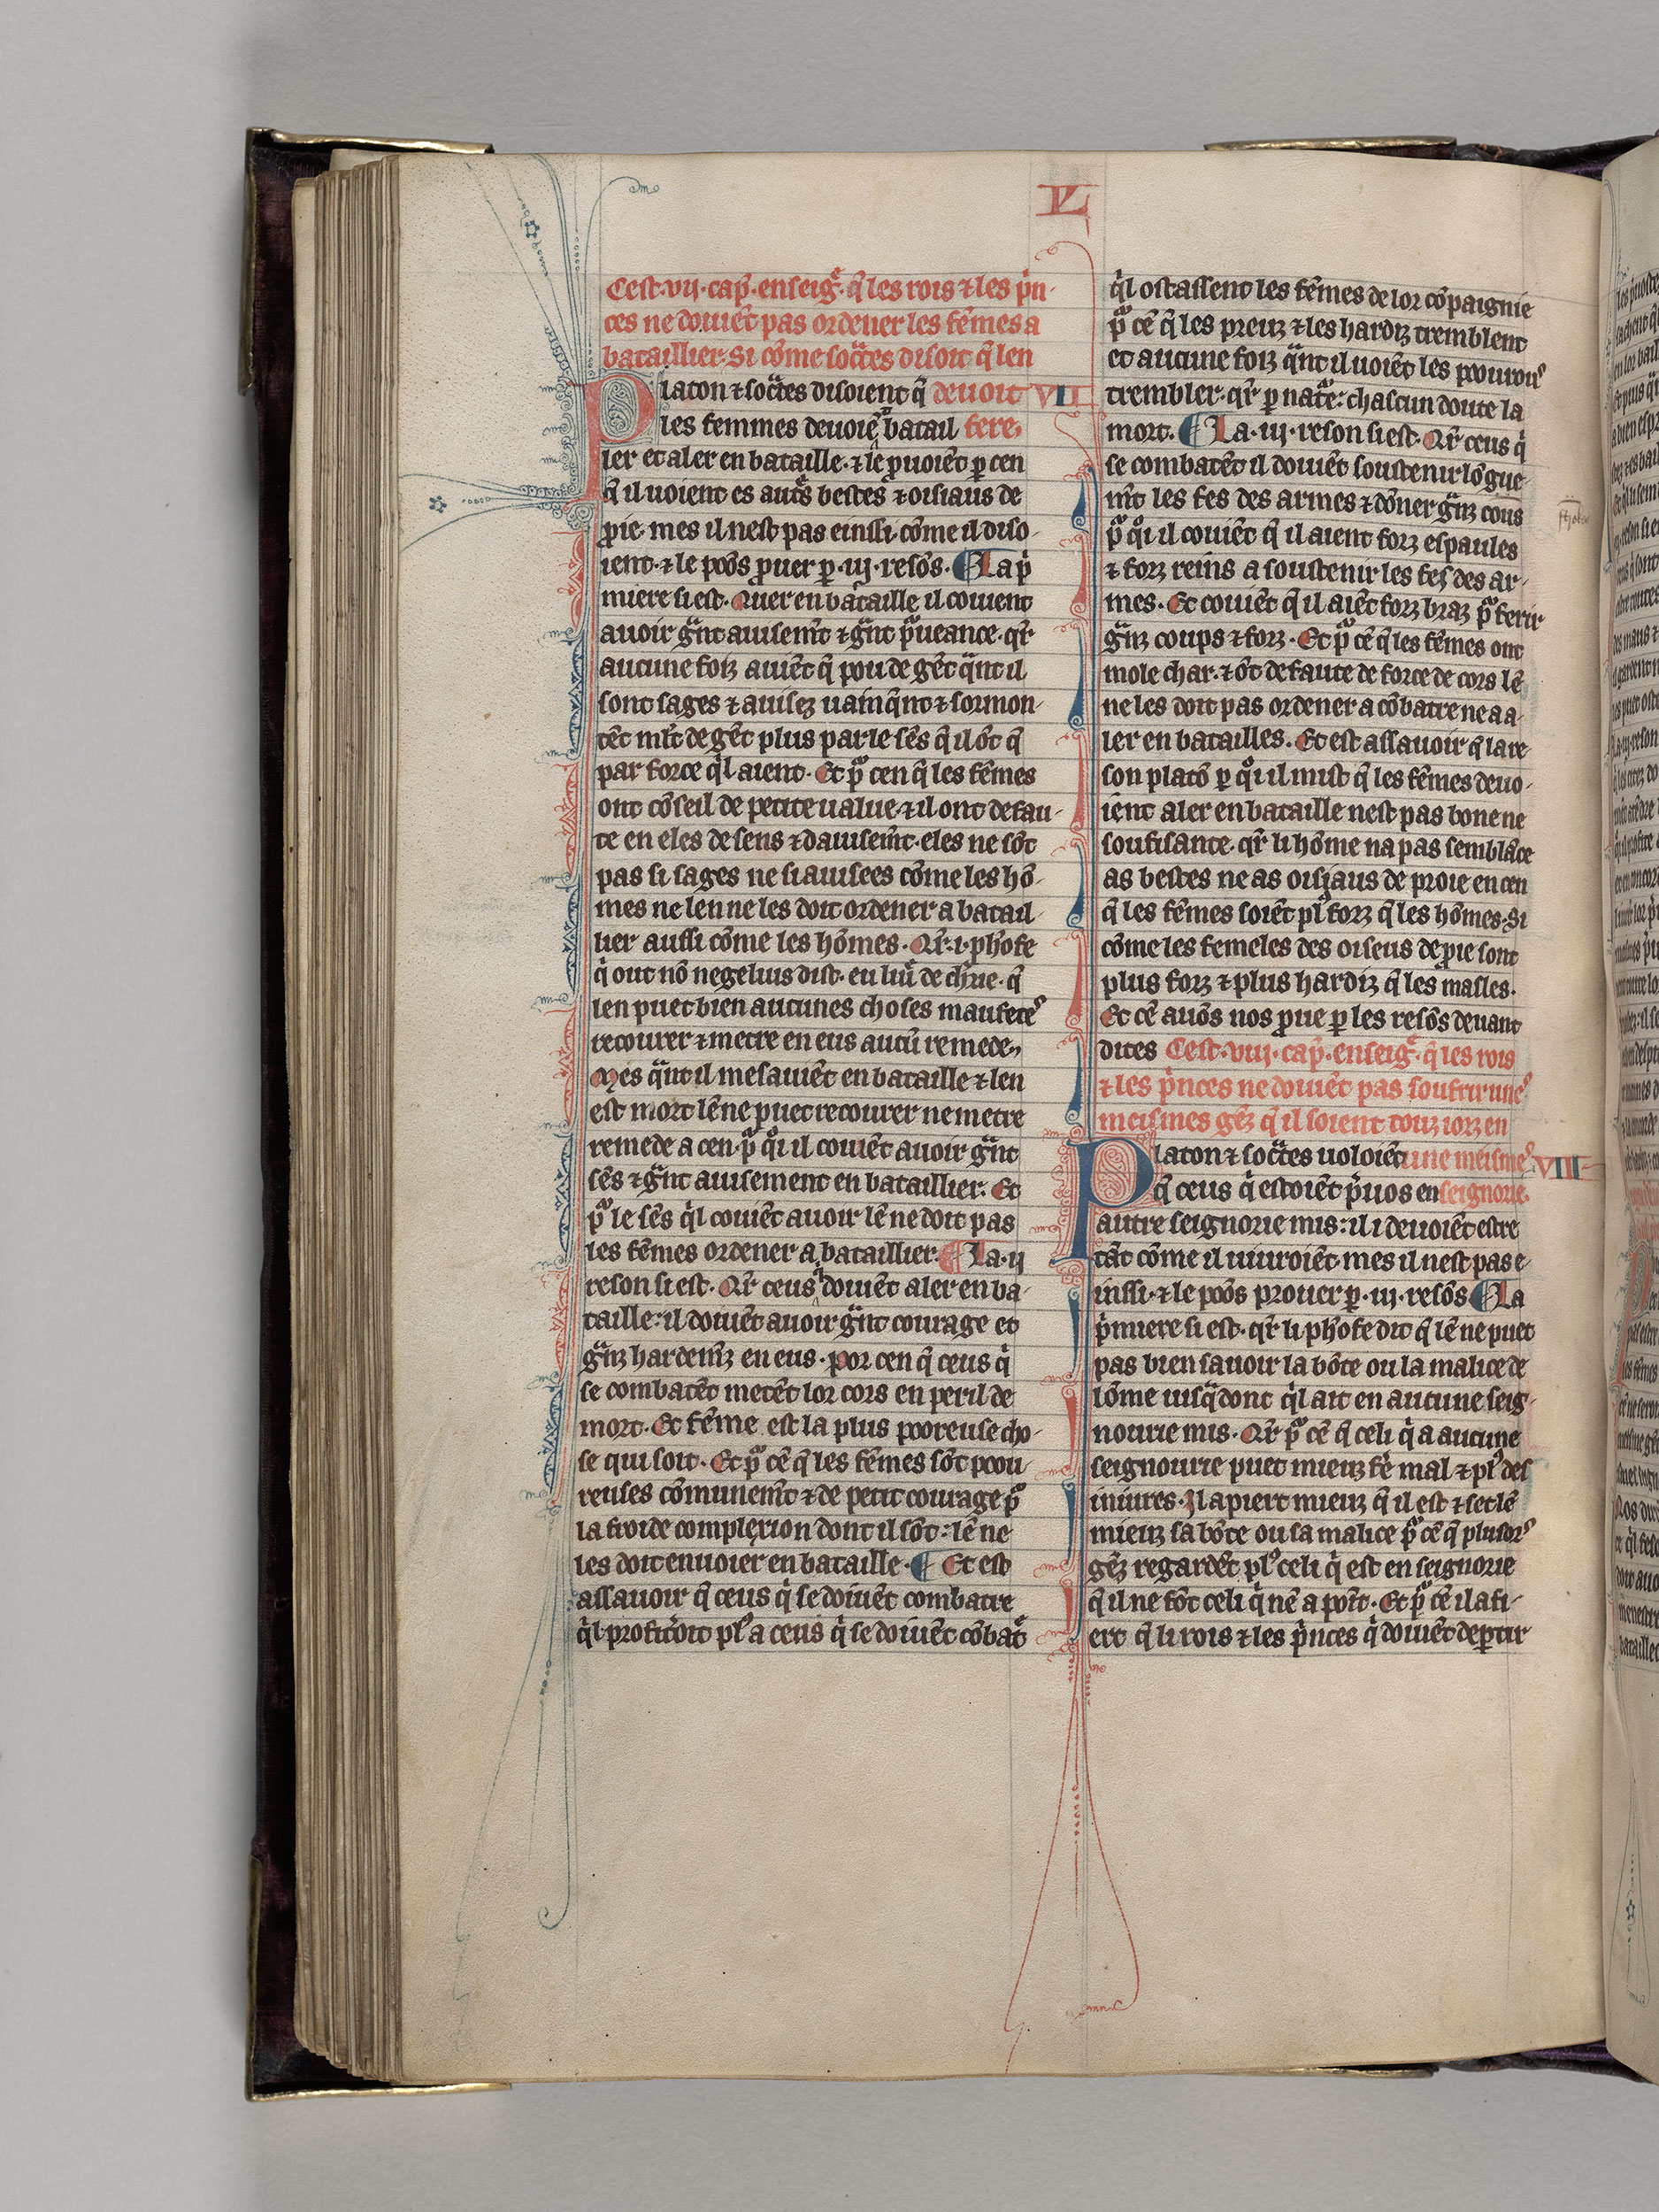 L
Cest .vij. cap̃. enseig̃. q̃ les rois ⁊ les p̾n-
ces ne doiuẽt pas ordener les fẽmes a
bataillier. Si cõme soc̾tes disoit q̃ len
deuoit
fere.
VII
Platon ⁊ soc̾tes disoient q̃
les femmes deuoiẽt batail
ler et aler en bataille. ⁊ le p̱uoiẽt p̱ cen
q̃ il uoient es aut̾s bestes ⁊ oisiaus de
p̱ie. mes il nest pas einssi. cõme il diso-
ient. ⁊ le poõs p̱uer p̱ .iij. resõs. ¶ La p̾
miere si est. Quer en bataille il couient
auoir g̾nt auisem̃t ⁊ g̾nt p̱ueance. q̾r
aucune foiz auiẽt q̃ pou de gẽt q̾nt il
sont sages ⁊ auisez uainq̃nt ⁊ sormon-
tẽt ml̃t de gẽt plus par le sẽs q̃ il õt q̃
par force q̾l aient. Et p̱̾ cen q̃ les fẽmes
ont cõseil de petite ualue. ⁊ il ont defau-
te en eles de sens ⁊ dauisem̃t. eles ne sõt
pas si sages ne si auisees cõme les hõ-
mes ne len ne les doit ordener a batail-
lier aussi cõme les hõmes. Q̾r .i. ph̾ofe
q̾ out nõ negelius dist. eu liu̾ de ch̾rie. q̃
len puet bien aucunes choses maufetes
recourer ⁊ metre en eus aucũ remede.
Mes q̾nt il mesauiẽt en bataille ⁊ len
est mort lẽ ne puet recourer ne metre
remede a cen. p̱̾ q̾i il couiẽt auoir g̾nt
sẽs ⁊ g̾nt auisement en bataillier. Et
p̱̾ le sẽs q̾l couiẽt auoir lẽ ne doit pas
les fẽmes ordener a bataillier. ¶ La .ij
reson si est. Q̾r ceus q̾ doiuẽt aler en ba-
taille: il doiuẽt auoir g̾nt courage et
g̾nz hardem̃z en eus. por cen q̃ ceus q̾
se combatẽt metẽt lor cors en peril de
mort. Et fẽme est la plus pooreuse cho-
se qui soit. Et p̱̾ cẽ q̃ les fẽmes sõt poou
reuses cõmunem̃t ⁊ de petit courage p̱̾
la froide complexion dont il sõt: lẽ ne
les doit enuoier en bataille. ¶ Et est
assauoir q̃ ceus q̾ se doiuẽt combatre
q̾l profit̾oit pl⁹ a ceus q̾ se doiuẽt cõbat̾
q̾l ostassent les fẽmes de lor cõpaignie
p̱̾ cẽ q̃ les preuz ⁊ les hardiz tremblent
et aucune foiz q̾nt il uoiẽt les poourous
trembler. q̾r p̱ nat̾e: chascun doute la
mort. ¶ La .iij. reson si est. Q̾r ceus q̾
se combatẽt il doiuẽt soustenir lõgue
m̃t les fes des armes ⁊ dõner g̾nz cous
p̱̾ q̾i il couiẽt q̃ il aient forz espaules
⁊ forz reins a soustenir les fes des ar-
mes. Et couiẽt q̃ il aiẽt forz braz p̱̾ ferir
g̾nz coups ⁊ forz. Et p̱̾ cẽ q̃ les fẽmes ont
mole char. ⁊ õt defaute de force de cors lẽ
ne les doit pas ordener a cõbatre ne a a-
ler en batailles. Et est assauoir q̃ la re
son platõ p̱ q̾i il mist q̃ les fẽmes deuo-
ient aler en bataille nest pas bone ne
soufisante. q̾r li hõme na pas semblãce
as bestes ne as oisiaus de proie en cen
q̃ les fẽmes soiẽt pl⁹ forz q̃ les hõmes. Si
cõme les femeles des oiseus de p̱ie sont
plus forz ⁊ plus hardiz q̃ les masles.
Et cẽ auõs nos p̱ue p̱ les resõs deuant
dites Cest .viij. cap̃. enseig̃. q̃ les rois
⁊ les p̾nces ne doiuẽt pas soufrir unes
meismes gẽz q̃ il soient touz iorz en
une meisme
seignorie.
VIII
Platon ⁊ soc̾tes uoloiẽt
q̃ ceus q̾ estoiẽt p̾uos en
autre seignorie mis: il i deuoiẽt estre
tãt cõme il uiuroiẽt. mes il nest pas e-
inssi. ⁊ le poõs prouer p̱ .iij. resõs ¶ La
p̾miere si est. q̾r li ph̾ofe dit q̃ lẽ ne puet
pas bien sauoir la bõte ou la malice de
lõme iusq̃ dont q̾l ait en aucune seig-
nourie mis. Q̾r p̱̾ cẽ q̃ celi q̾ a aucune
seignourie puet mieuz fẽ mal ⁊ pl⁹ des
iniures. Il apiert mieuz q̃ il est ⁊ set lẽ
mieuz sa bõte ou sa malice p̱̾ cẽ q̃ plusors
gẽz regardẽt pl⁹ celi q̾ est en seignorie
q̃ il ne fõt celi q̾ nẽ a poĩt. Et p̱̾ cẽ il afi-
ert q̃ li rois ⁊ les p̾nces q̾ doiuẽt dep̱tir